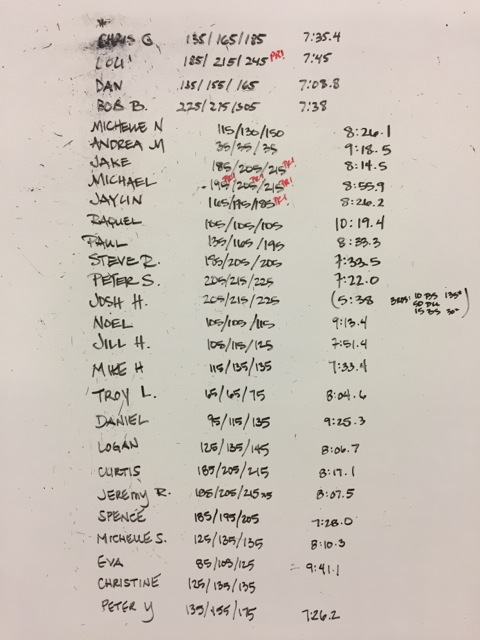 *
CHRIS G 135/165/185 7:35.4
LOU 185/215/245 PR! 7:45
DAN 135/155/165 7:03.8
BOB B. 225/275/305 7:38
MICHELLE N 115/130/150 8:26.1
ANDREA M 35/35/35 9:18.5
JAKE 185/205/215 PR! 8:14.5
MICHAEL 195/205/215 PR! PR! PR! 8:55.9
JAYLIN 165/175/185 PR! 8:26.2
RAQUEL 105/105/105 10:19.4
PAUL 135/165/195 8:33.3
STEVE R. 185/205/205 7:33.5
PETER S. 205/215/225 7:22.0
JOSH H. 205/215/225 (5:38 3RDS: 10 PS 135#
50 DU
15 BS 30")
NOEL 105/105/115 9:13.4
JILL H. 105/115/125 7:51.4
MIKE H 115/135/135 7:33.4
TROY L. 65/65/75 8:04.6
DANIEL 95/115/135 9:25.3
LOGAN 125/135/145 8:06.7
CURTIS 185/205/215 8:17.1
JEREMY R. 185/205/215 x5 8:07.5
SPENCE 185/195/205 7:28.0
MICHELLE S. 125/135/135 8:10.3
EVA 85/105/125 9:41.1
CHRISTINE 125/135/135
PETER Y 135/155/175 7:26.2